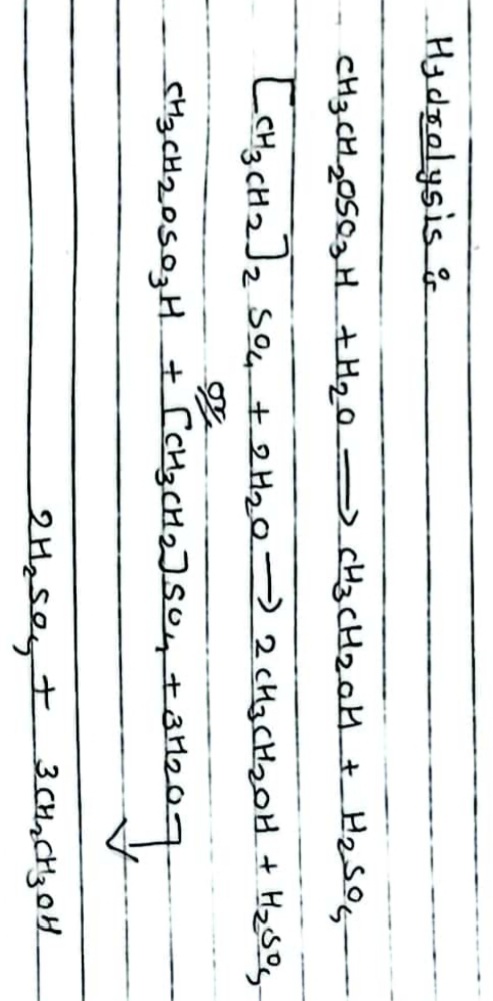 Hydrolysis :-
CH3CH2OSO3H + H2O → CH3CH2OH + H2SO4
[CH3CH2]2 SO4 + 2H2O → 2CH3CH2OH + H2SO4
or
CH3CH2OSO3H + [CH3CH2]SO4 + 3H2O
2H2SO4 + 3CH2CH3OH